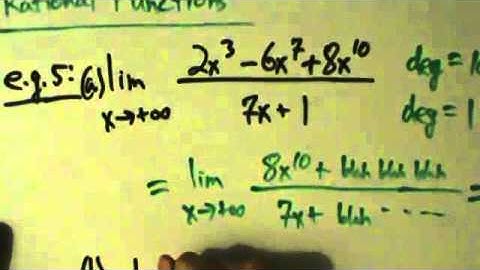 Rational Functions
e.g. 5: (a) lim x→+∞ (2x³ - 6x⁷ + 8x¹⁰)/(7x + 1) deg = 10 deg = 1
= lim x→+∞ (8x¹⁰ + blah blah blah)/(7x + blah ----) =